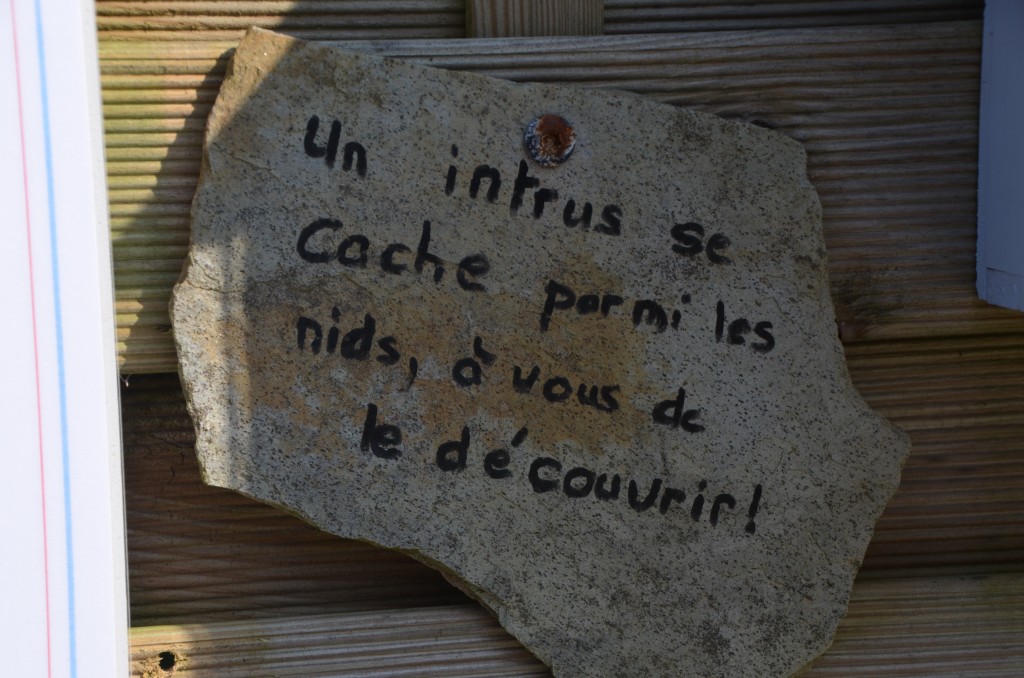 Un intrus se
Cache parmi les
nids, à vous de
le découvrir!